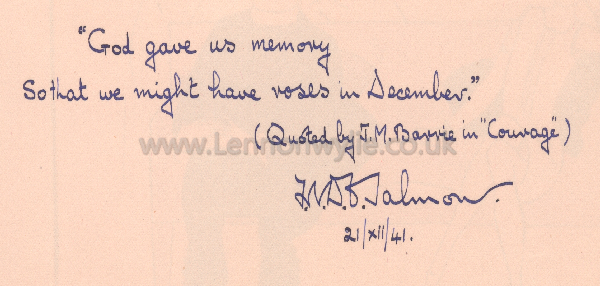 "God gave us memory
So that we might have roses in December."
(Quoted by J.M. Barrie in "Courage")
www.Lennonwylie.co.uk
21/XII/41.